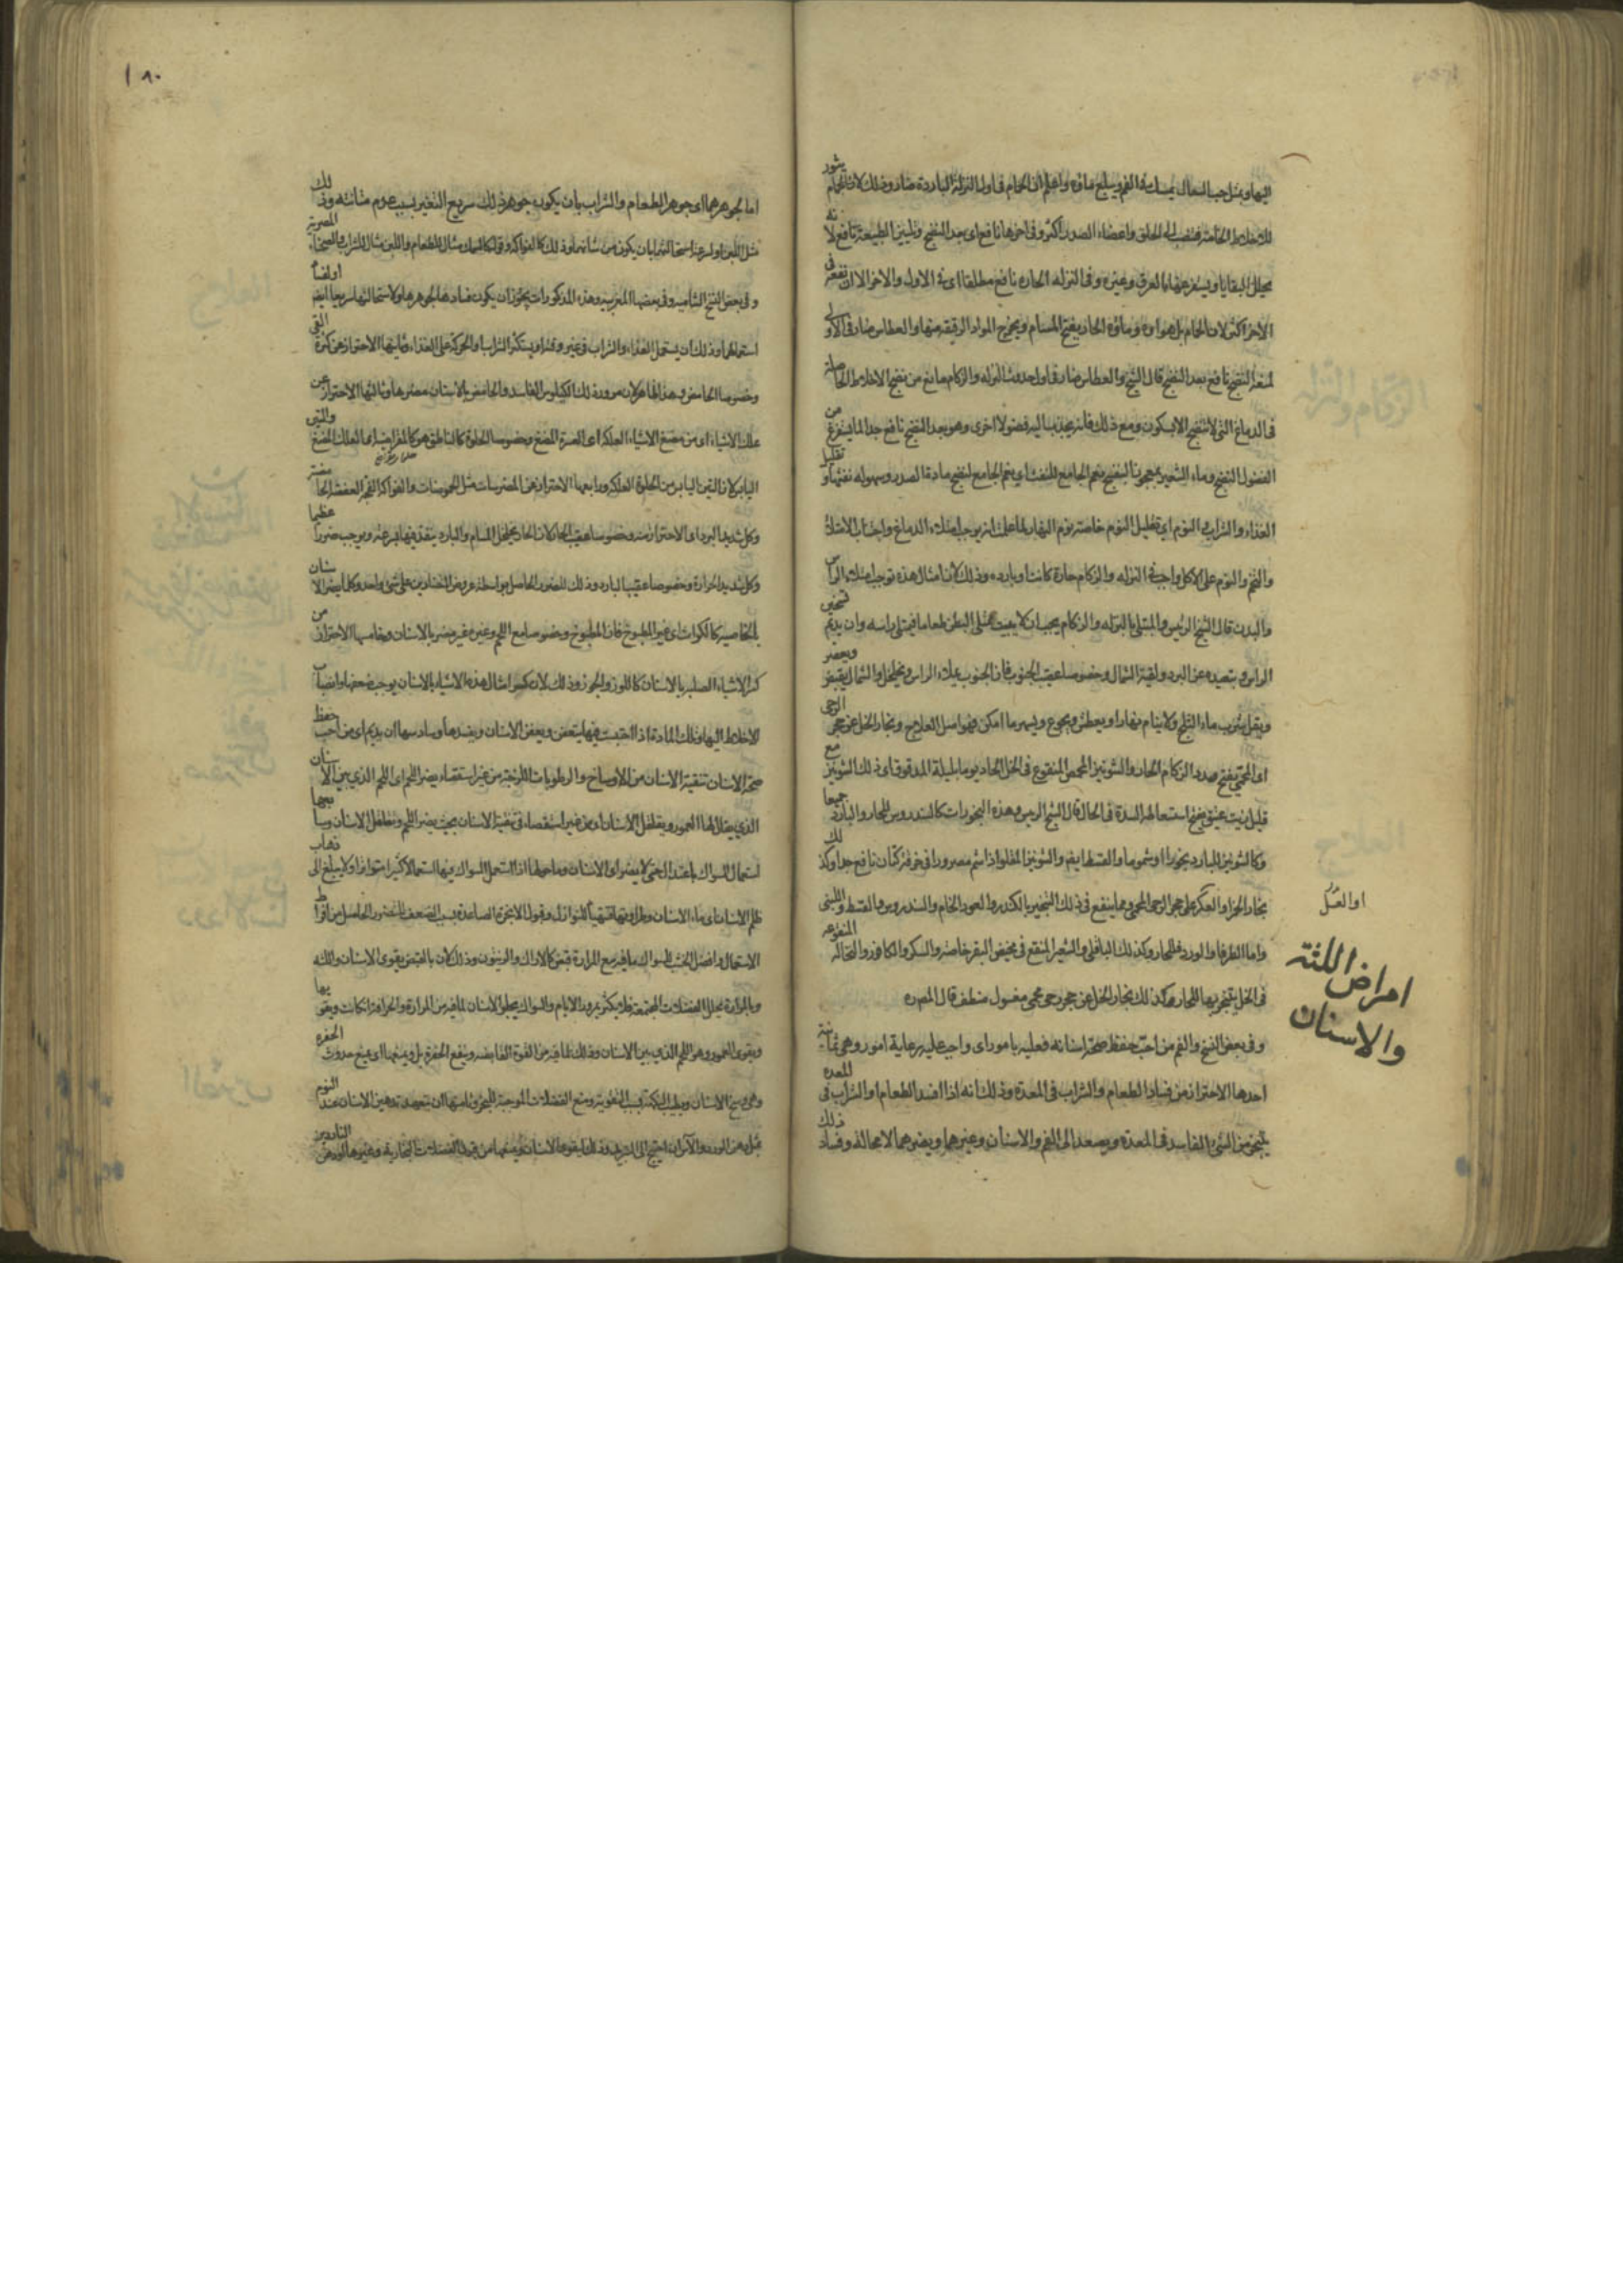 اليها ويمثل حب السعال يمسك في الفم ويبلع ماؤه واعلم ان الحمام في اول النزلة الباردة ضار وذلك لان الحمام يثور
للاخلاط الخامة فتنصب الى الحلق واعضاء الصدر اكثر وفي اخرها نافع اى بعد النضج وتليين الطبيعة نافع لانه
يحلل البقايا ويستفرغها بالعرق وغيره وفي النزله الحاره نافع مطلقا اى في الاول والاخر الا ان نفعه في
الاخر اكثر لان الحمام بل هواؤه وماؤه الحار يفتح المسام ويخرج المواد الرقيقه منها والعطاس ضار في الاول
لمنعه النضج نافع بعد النضج قال الشيخ والعطاس ضار في اول حدوث النزله والزكام مانع من نضج الاخلاط الحاصلة
في الدماغ التي لا تنضج الا بسكون ومع ذلك فانه يجذب اليه فضولا اخرى وهو بعد النضج نافع جدا لما يستفرغ من
الفضول النضج وماء الشعير بمعجون البنفسج نعم الجامع للنفث اى نعم الجامع لنضج مادة الصدر وسهوله نفثها وتقليل
الغذاء والشراب والنوم اى تقليل النوم خاصه نوم النهار لما علمت انه يوجب امتلاء الدماغ واجتناب الامتلاء
والتخم والنوم على الاكل واجب في النزله والزكام حارة كانت او بارده وذلك لان امثال هذه توجب امتلاء الراس
والبدن قال الشيخ الرئيس والمبتلى بالنزله والزكام يجب ان لا يبيت ممتلى البطن طعاما فيمتلى راسه وان يديم تسخين
الراس ويبعده عن البرد ولقية الشمال وخصوصا عقيب الجنوب فان الجنوب يملاء الراس ويخلخل والشمال يقبض ويعصر
ويقل شرب ماء الثلج ولا ينام نهارا ويعطش ويجوع ويسهر ما امكن فهو اصل العلاج وبخار الخل عن حجر الرحى
اى المحمى يفتح سدد الزكام الحار والشونيز المحمص المنقوع في الخل الحاد يوما بليلة المدقوق اى ذلك الشونيز مع
قليل زيت عتيق يفتح استعماله السدة في الحال قال الشيخ الرئيس وهذه البخورات كالسندروس للحار والبارد جميعا
وكالشونيز للبارد بخورا او شموما والقسط ايضا والشونيز المقلو اذا شم مصرورا في خرقة كتان نافع جدا وكذلك
بخار الخزاو العكر على حجر الرحى المحمى ومما ينفع في ذلك التبخير بالكندر والعود الخام والسندروس والقسط واللبنى
واما الطرفا والورد فللحار وكذلك الباقلى والشعير المنقع في مخيض البقر خاصة والسكر والكافور والنخالة المنقوعه
في الخل يتبخر بها للحار وكذلك بخار الخل عن حجر رحى محمى مغسول منظف قال المص ره
وفي بعض النسخ والفم من احب حفظ صحة اسنانه فعليه بامور اى واجب عليه رعاية امور وهى ثمانية
احدها الاحتراز من فساد الطعام والشراب في المعدة وذلك انه اذا افسد الطعام او الشراب في المعده
يتبخر من الشى الفاسد في المعدة ويصعد الى الفم والاسنان وغيرهما ويضرهما لا محالة وفساد ذلك
او العسل
امراض اللثة
والاسنان
١٨٠
اما لجوهرهما اى جوهر الطعام والشراب بان يكون جوهر ذلك سريع التغير بسبب عدم متانته وذلك
مثل اللبن او لسرعة استحالتهما بان يكون من شانهما وذلك كالفواكه وقوله كالسمك مثال للطعام واللبن مثال للشراب والصحناء المصرية
وفي بعض النسخ الشاميه وفي بعضها المغربيه وهذه المذكورات يجوز ان يكون فسادها لجوهرها ولاستحالتها سريعا ايضا او لفساد
استعمالهما وذلك ان يستعمل الغذاء والشراب في غير وقته او يستكثر الشراب والحركة على الغذاء وثانيها الاحتراز عن كثرة القى
وخصوصا الحامض وهذا ظاهر لان مرور ذلك الكيلوس الفاسد والحامض بالاسنان مضر لها وثالثها الاحتراز عن
علك الاشياء اى من مضغ الاشياء العلكه اى العسرة المضغ وخصوصا الحلوة كالناطق هو كالفرانيد اى العلك المضغ والتين
اليابس لان التين اليابس من الحلوة العلكه ورابعها الاحتراز عن المضرسات مثل الحموضات والفواكه الفجه العفصة الحامضة
وكل شديد البرد اى الاحتراز منه وخصوصا عقيب الحار لان الحار يخلخل المسام والبارد ينفذ فيها بسرعة ويوجب ضررا عظيما
وكل شديد الحرارة وخصوصا عقيب البارد وذلك للضرر الحاصل بواسطة عروض المتضادين على شى واحد وكل ما يضر الاسنان
بالخاصيه كالكراث اى غير المطبوخ فان المطبوخ وخصوصا مع اللحم وغيره غير مضر بالاسنان وخامسها الاحتراز من
كسر الاشياء الصلبه بالاسنان كاللوز والجوز وذلك لان كسر امثال هذه الاشياء بالاسنان يوجب ضعفها وانصباب
الاخلاط اليها وتلك المادة اذا احتبست فيها يتعفن ويعفن الاسنان ويفسدها وسادسها ان يديم اى من احب حفظ
صحة الاسنان تنقية الاسنان من الاوساخ والرطوبات اللزجة من غير استقصاء يضر اللحم اى اللحم الذي بين الاسنان
الذي يقال لها العمور ويقلقل الاسنان اى من غير استقصاء في تنقية الاسنان بحيث يضر اللحم ويقلقل الاسنان وسابعها
استعمال السواك باعتدال حتى لا يضر اى الاسنان وما حولها اذا استعمل السواك فيها استعمالا كثيرا متواترا ولا يبلغ الى ذهاب
ظلم الاسنان اى ماء الاسنان وطراوتها فتتهيا للنوازل وقبول الابخرة الصاعدة بسبب الضعف للضرر الحاصل من افراط
الاستعمال وافضل الخشب للسواك ما فيه مع المرارة قبض كالاراك والزيتون وذلك لان بالقبض يقوى الاسنان واللثه
وبالمرارة يحلل الفضلات المجتمعة فلا يكثر بمرور الايام والسواك يجلو الاسنان لما فيه من المرارة والحرافة ان كانت ويقويها
ويقوى العمور وهو اللحم الذي بين الاسنان وذلك لما فيه من القوة القابضه ويمنع الحفرة بل ويمنعها اى يمنع حدوث الحفره
وهى وسخ الاسنان ويطيب النكهة بسبب التقوية ومنع الفضلات الموجبة للبخر وثامنها ان يتعهد تدهين الاسنان عند النوم